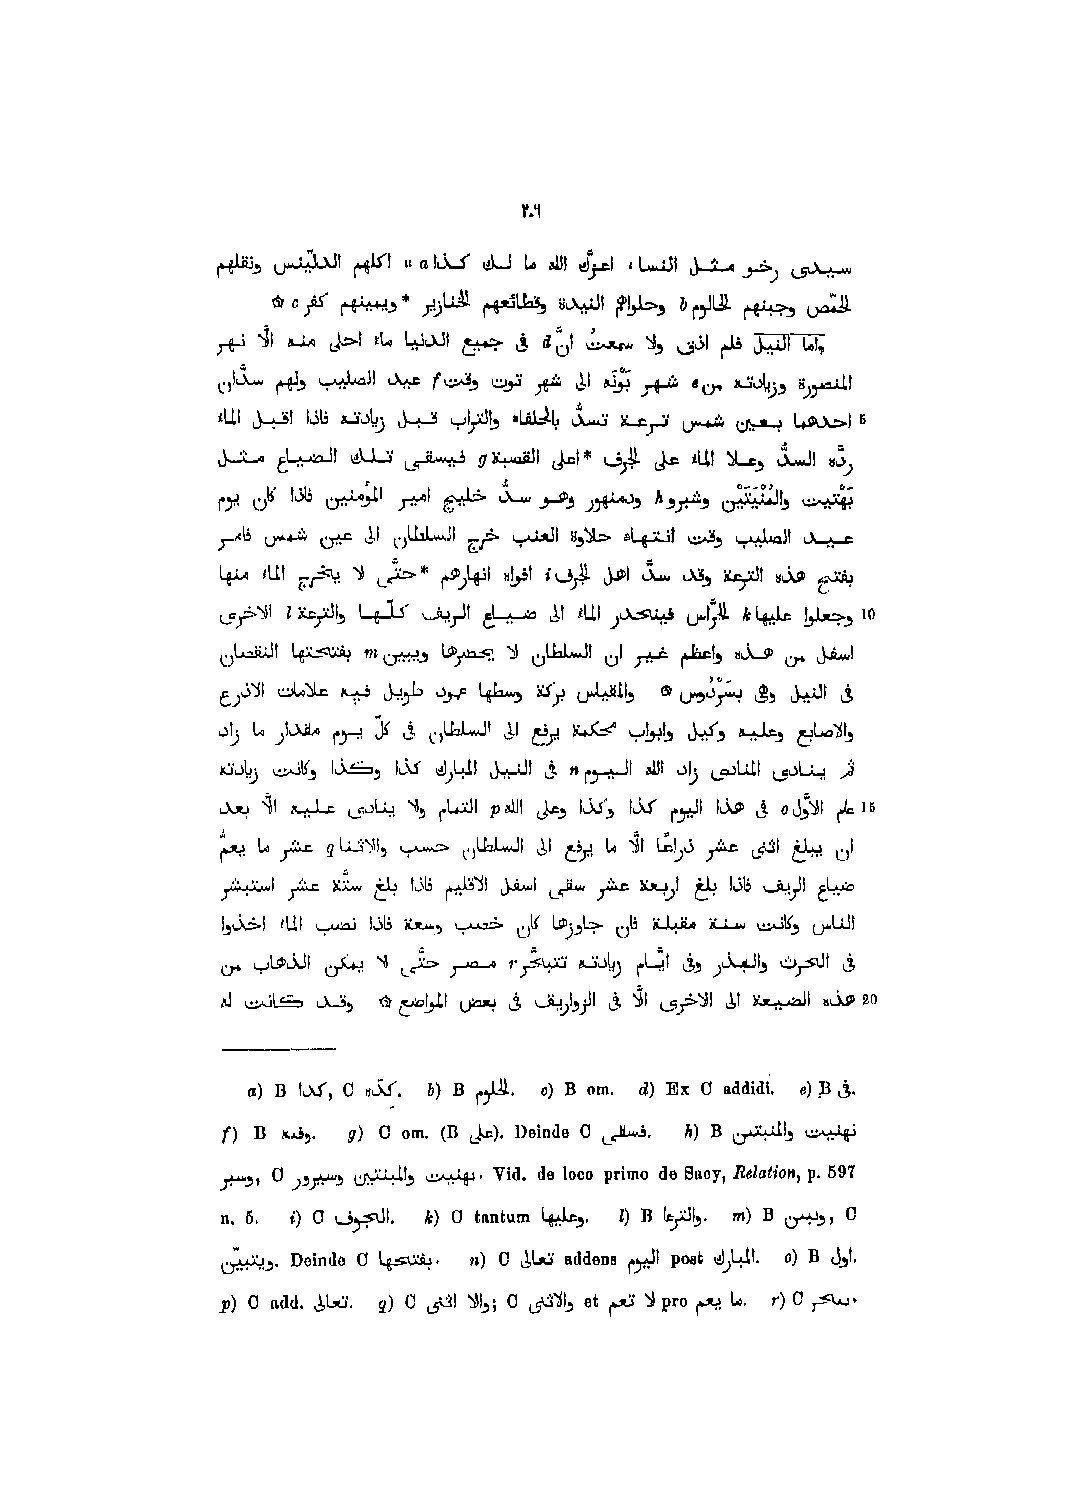 ٢٠٦
سيدى رخو مثل النساء اعزّك الله ما لك كذا a ¤ اكلهم الدلّينس ونقلهم
الحمّص وجبنهم الحالوم b وحلواؤهم النيدة وقطائعهم الخنازير *ويمينهم كفر c ۞
وامّا النيل فلم اذق ولا سمعتُ انّ d فى جميع الدنيا ماء احلى منه الّا نهر
المنصورة وزيادته من e شهر بَوُنَه الى شهر توت وقت f عيد الصليب ولهم سدّان
5 احدهما بعين شمس ترعة تسدّ بالحلفاء والتراب قبل زيادته فاذا اقبل الماء
ردّه السدّ وعلا الماء على الجرف *اعلى القصبة g فيسقى تلك الضياع مثل
بَهْتيت والمُنْيَتَيْن وشبرو h ودمنهور وهو سدّ خليج امير المؤمنين فاذا كان يوم
عيد الصليب وقت انتهاء حلاوة العنب خرج السلطان الى عين شمس فامر
بفتح هذه الترعة وقد سدّ اهل الجرف i افواه انهارهم *حتّى لا يخرج الماء منها
10 وجعلوا عليها k الحرّاس فينحدر الماء الى ضياع الريف كلّها والترعة l الاخرى
اسفل من هذه واعظم غير ان السلطان لا يحضرها ويبين m بفتحتها النقصان
فى النيل وهى بسَرْدُوس ۞ والمقياس بركة وسطها عمود طويل فيه علامات الاذرع
والاصابع وعليه وكيل وابواب محكمة يرفع الى السلطان فى كلّ يوم مقدار ما زاد
ثم ينادى المنادى زاد الله اليوم n فى النيل المبارك كذا وكذا وكانت زيادته
15 عام الاوّل o فى هذا اليوم كذا وكذا وعلى الله p التمام ولا ينادى عليه الّا بعد
ان يبلغ اثنى عشر ذراعًا الّا ما يرفع الى السلطان حسب والاثنا q عشر ما يعمّ
ضياع الريف فاذا بلغ اربعة عشر سقى اسفل الاقليم فاذا بلغ ستّة عشر استبشر
الناس وكانت سنة مقبلة فان جاوزها كان خصب وسعة فاذا نضب الماء اخذوا
فى الحرث والبذر وفى ايّام زيادته تتبحّر r مصر حتّى لا يمكن الذهاب من
20 هذه الضيعة الى الاخرى الّا فى الزواريق فى بعض المواضع ۞ وقد كانت له
a) B كدا, C كذه. b) B الحلوم. c) B om. d) Ex C addidi. e) B فى.
f) B وقته. g) C om. (B على). Deinde C فسقى. h) B نهنيت والمنيتين
وسبر, C بهنيت والمبنتين وسيرور. Vid. de loco primo de Sacy, Relation, p. 597
n. 5. i) C الجوف. k) C tantum وعليها. l) B والترعا. m) B ويبىن, C
ويتبيّن. Deinde C بفتحها. n) C تعالى addens اليوم post المبارك. o) B اول.
p) C add. تعالى. q) C والا اثنى; C والاثنى et لا تعم pro ما يعم. r) C